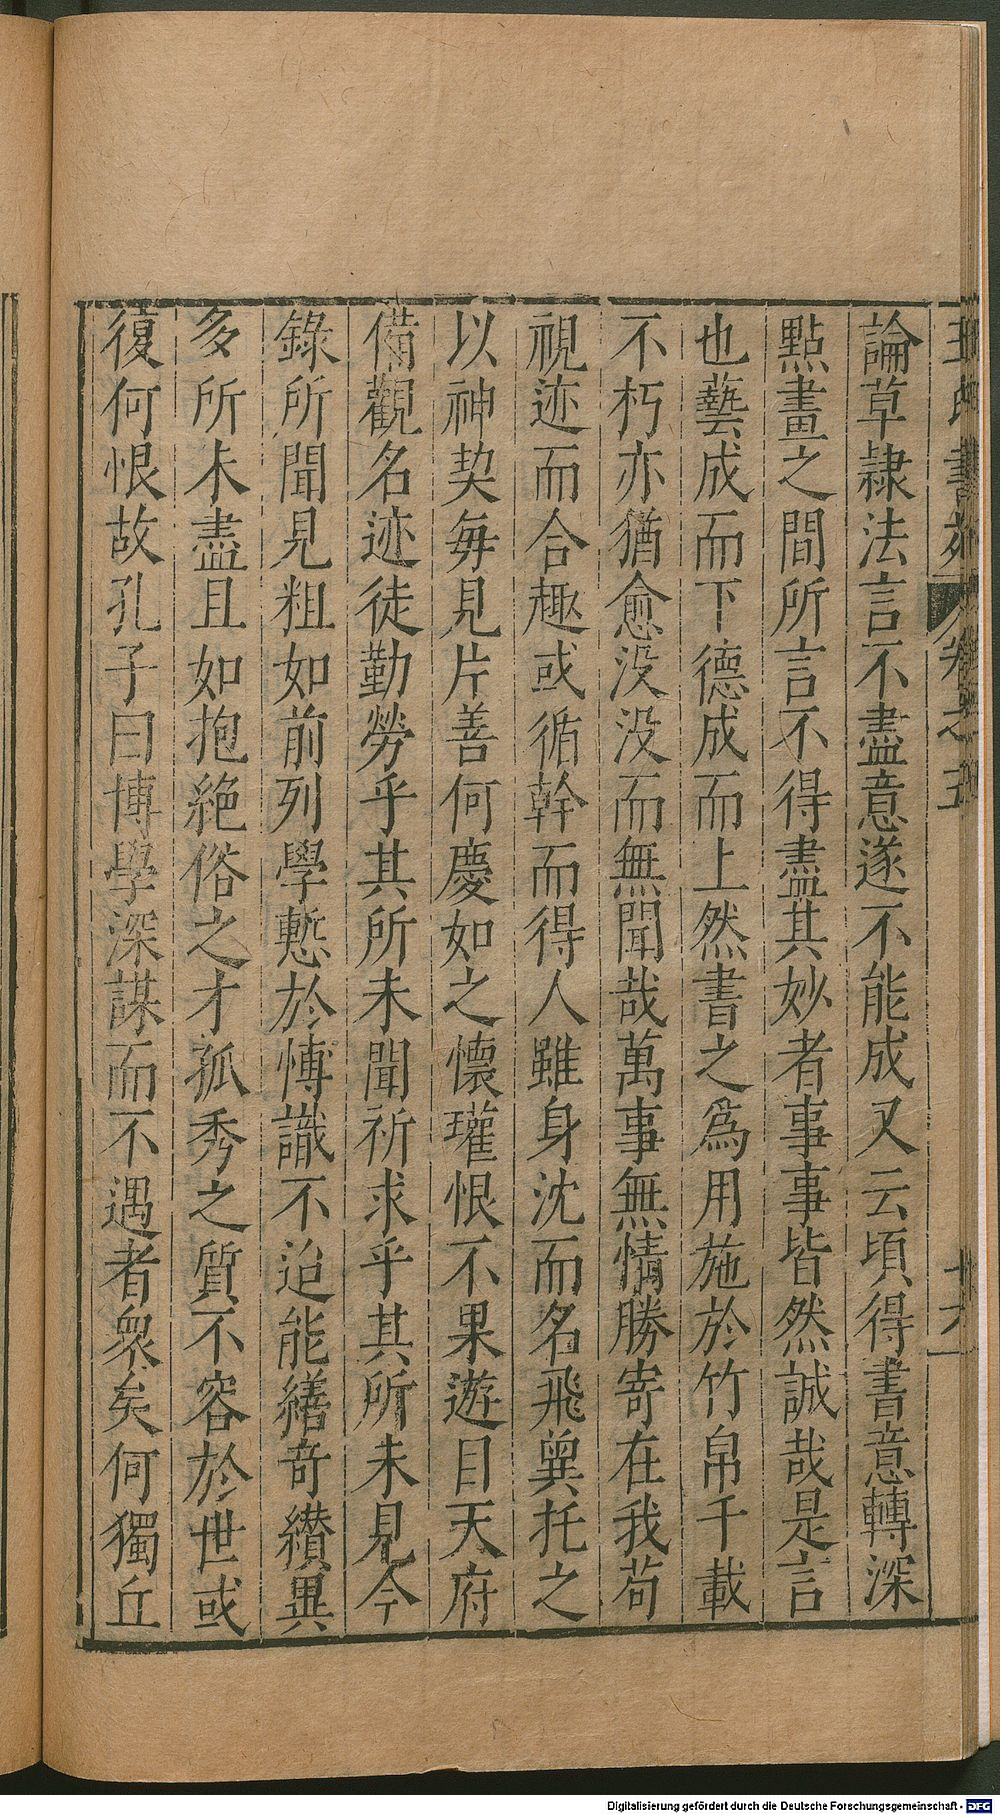 王氏書苑 卷之五 十六
論草隷法言不盡意遂不能成又云頃得書意轉深
點畫之間所言不得盡其妙者事事皆然誠哉是言
也藝成而下德成而上然書之爲用施於竹帛千載
不朽亦猶愈没没而無聞哉萬事無情勝寄在我苟
視迹而合趣或循幹而得人雖身沈而名飛冀托之
以神契每見片善何慶如之懷瓘恨不果遊目天府
備觀名迹徒勤勞乎其所未聞祈求乎其所未見今
錄所聞見粗如前列學慙於愽識不迨能繕奇纉異
多所未盡且如抱絶俗之才孤秀之質不容於世或
復何恨故孔子曰博學深謀而不遇者衆矣何獨丘
Digitalisierung gefördert durch die Deutsche Forschungsgemeinschaft - DFG